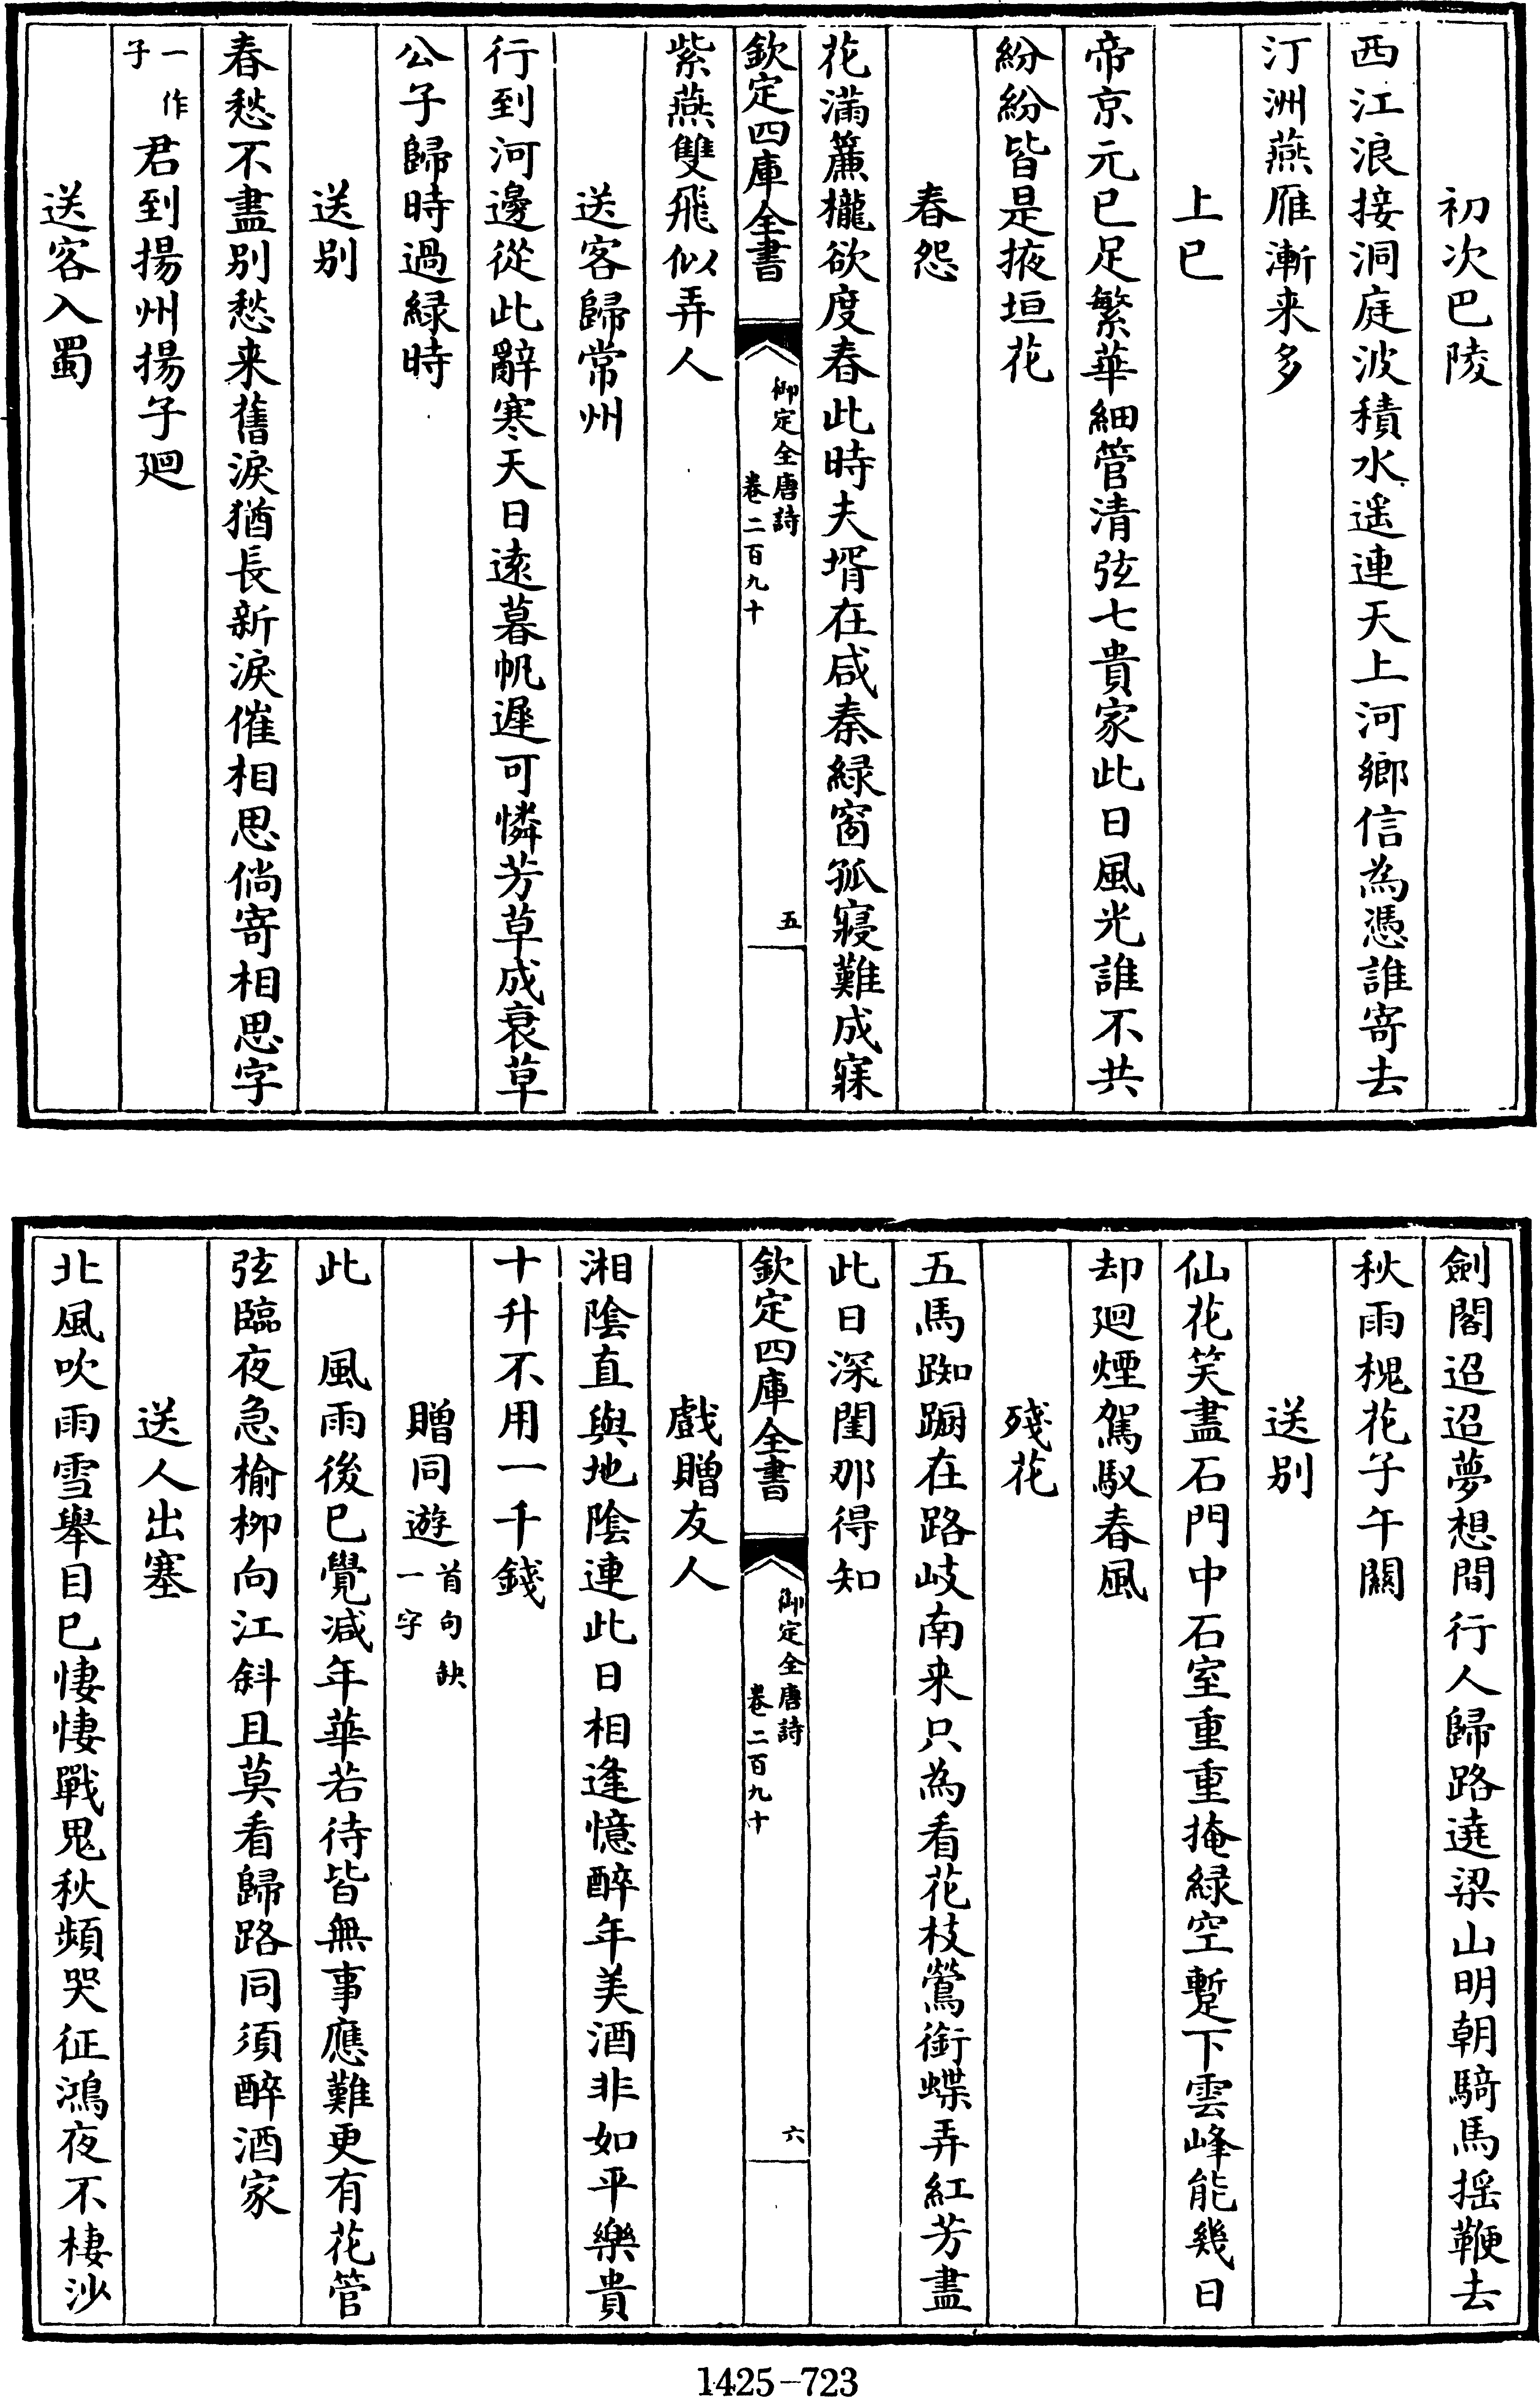 初次巴陵
西江浪接洞庭波積水遥連天上河鄉信為憑誰寄去
汀洲燕雁漸来多
上巳
帝京元巳足繁華細管清弦七貴家此日風光誰不共
紛紛皆是掖垣花
春怨
花滿簾櫳欲度春此時夫壻在咸秦緑窗孤寢難成寐
欽定四庫全書
御定全唐詩
卷二百九十
五
紫燕雙飛似弄人
送客歸常州
行到河邊從此辭寒天日遠暮帆遲可憐芳草成衰草
公子歸時過緑時
送别
春愁不盡别愁来舊淚猶長新淚催相思倘寄相思字
一作子君到揚州揚子廻
送客入蜀
劍閣迢迢夢想間行人歸路遶梁山明朝騎馬揺鞭去
秋雨槐花子午關
送别
仙花笑盡石門中石室重重掩緑空暫下雲峰能幾日
却廻煙駕馭春風
殘花
五馬踟蹰在路岐南来只為看花枝鶯銜蝶弄紅芳盡
此日深閨那得知
欽定四庫全書
御定全唐詩
卷二百九十
六
戲贈友人
湘陰直與地陰連此日相逢憶醉年美酒非如平樂貴
十升不用一千錢
贈同遊首句缺一字
此　風雨後已覺減年華若待皆無事應難更有花管
弦臨夜急榆栁向江斜且莫看歸路同須醉酒家
送人出塞
北風吹雨雪舉目已悽悽戰鬼秋頻哭征鴻夜不棲沙
1425-723